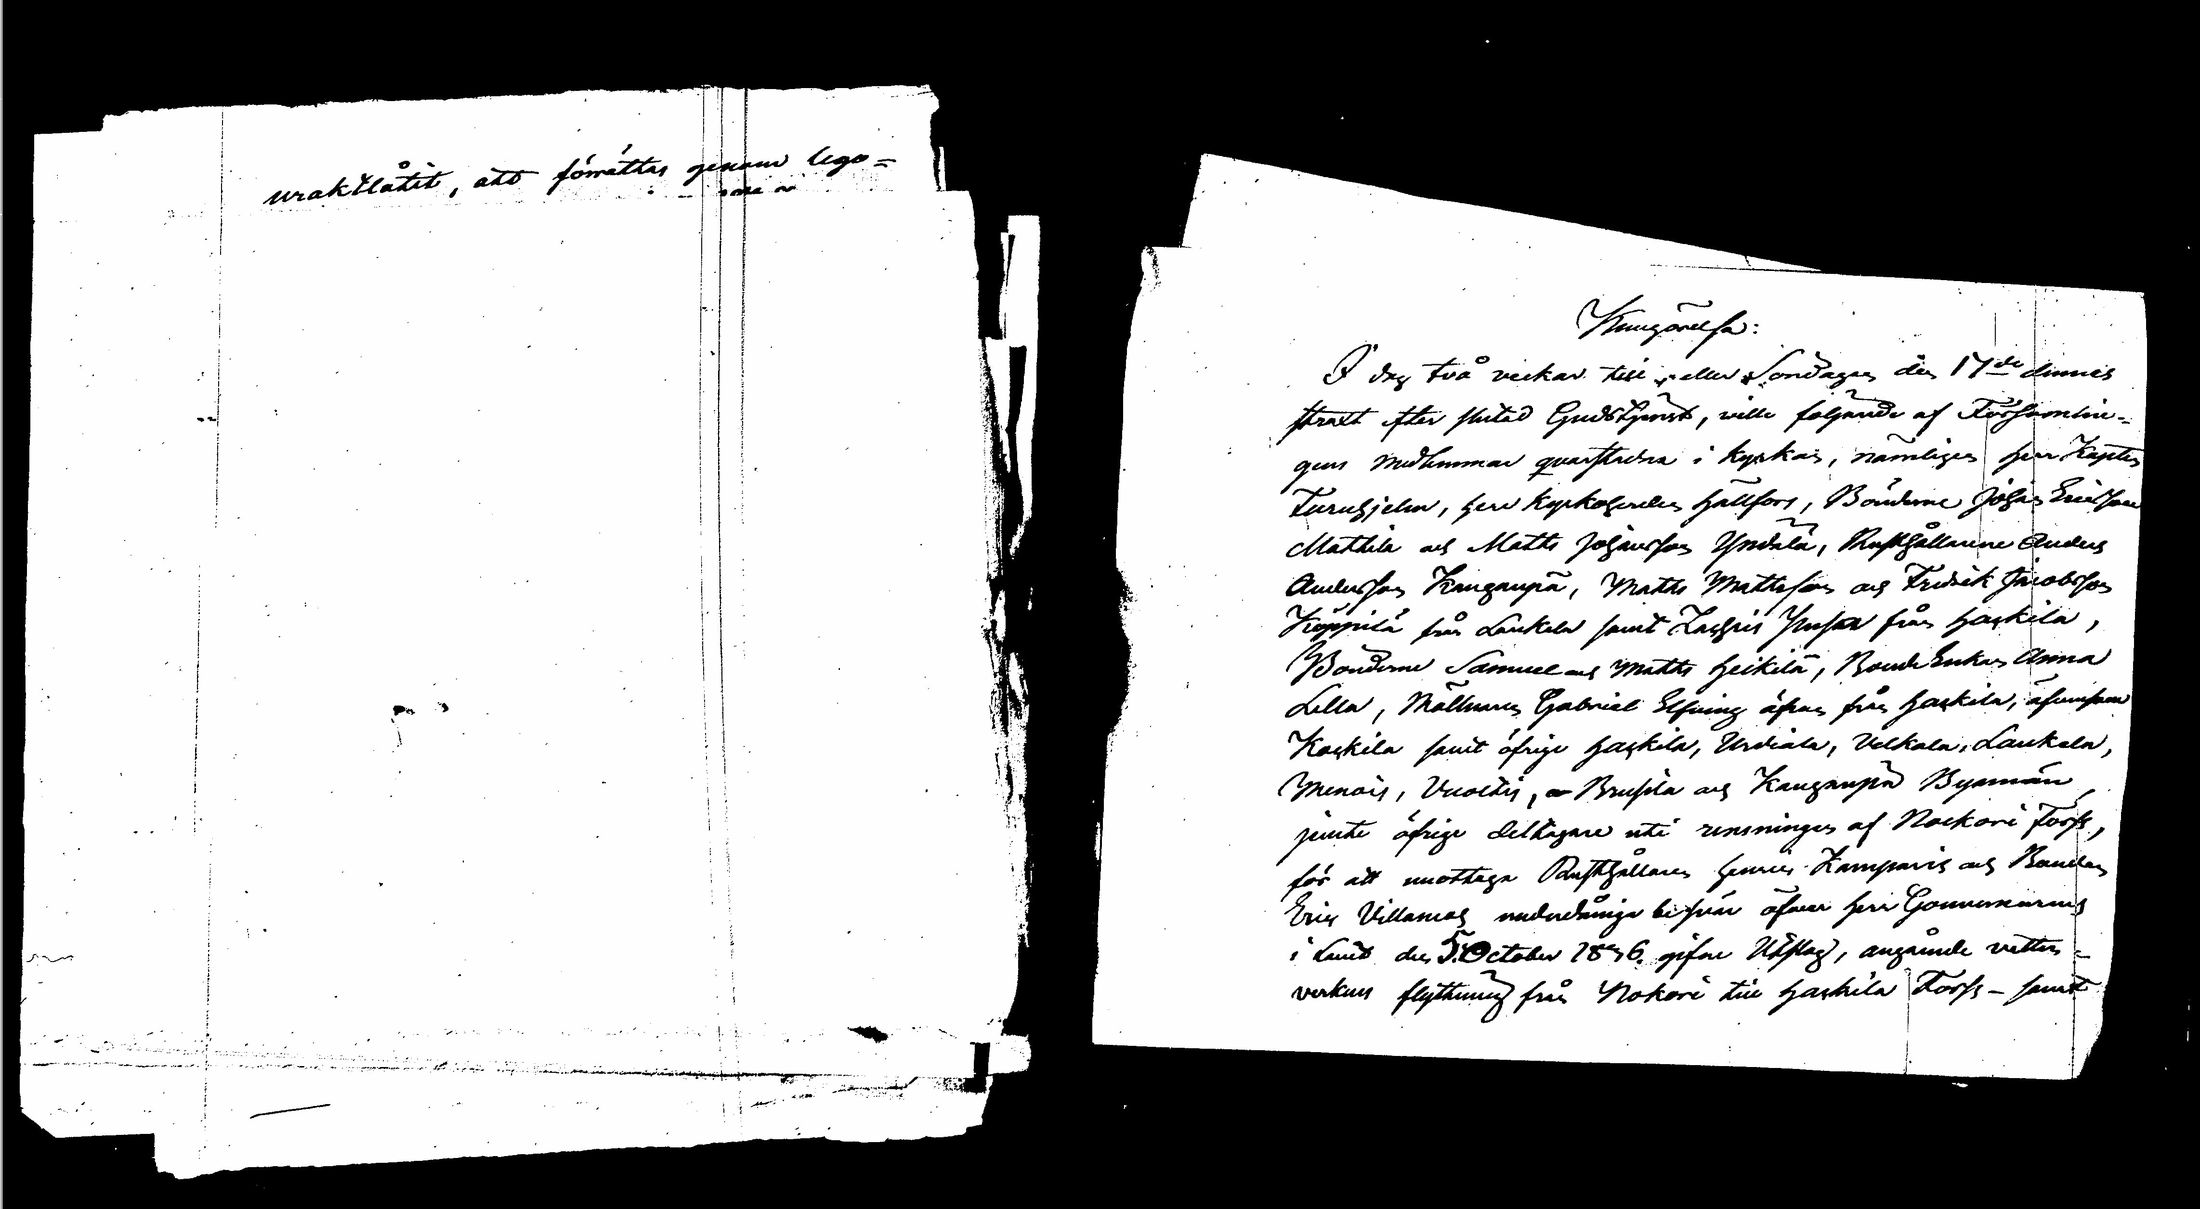 uraktlåtit, att förrättas genom lego=
Kungörelse:
I dag två veckor till, eller Söndagen den 17de dennes
straxt efter slutad Gudstjenst, ville följande af Församlin=
gens medlemmar qvarstadna i kyrkan, nämligen herr Kapten
Furuhjelm, herr Kyrkoherden Hällfors, Bönderne Johan Ericsson
Mattila och Matts Johansson Yrvälä, Rusthållarene Anders
Andersson Kangaupä, Matts Mattsson och Fredrik Jacobsson
Köppilä från Laukela samt Zachris från Haskila,
Bönderne Samuel och Matts Heikilä, Bonde Enkan Anna
Lilla, Möllnaren Gabriel Elfving äfven från Haskila, äfvensom
Koskila samt öfrige Haskila, Urdiala, Velkala, Laukela,
Menois, och Kangaupä Byamän,
jemte öfrige deltagare uti rensningen af Nockori Forss,
för att mottaga Rusthållaren Henric Kamparis och Bonden
Eric Villamos underdåniga besvär öfver herr Gouverneurens
i Länet den 5. October 1836. gifne Utslag, angående vatten=
verkens flyttning från Nokori till Haskila Forss – samt